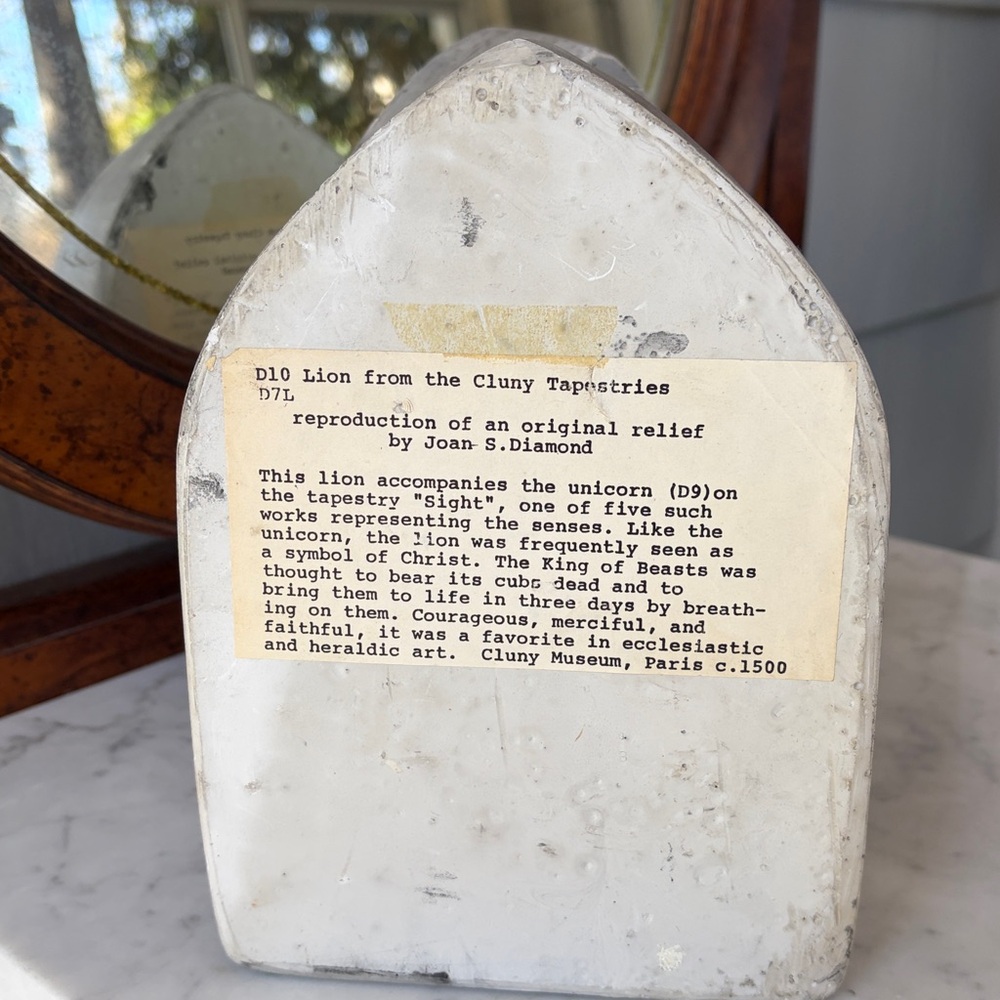 D10 Lion from the Cluny Tapestries
D7L
reproduction of an original relief
by Joan S.Diamond
This lion accompanies the unicorn (D9)on
the tapestry "Sight", one of five such
works representing the senses. Like the
unicorn, the lion was frequently seen as
a symbol of Christ. The King of Beasts was
thought to bear its cubs dead and to
bring them to life in three days by breath-
ing on them. Courageous, merciful, and
faithful, it was a favorite in ecclesiastic
and heraldic art. Cluny Museum, Paris c.1500